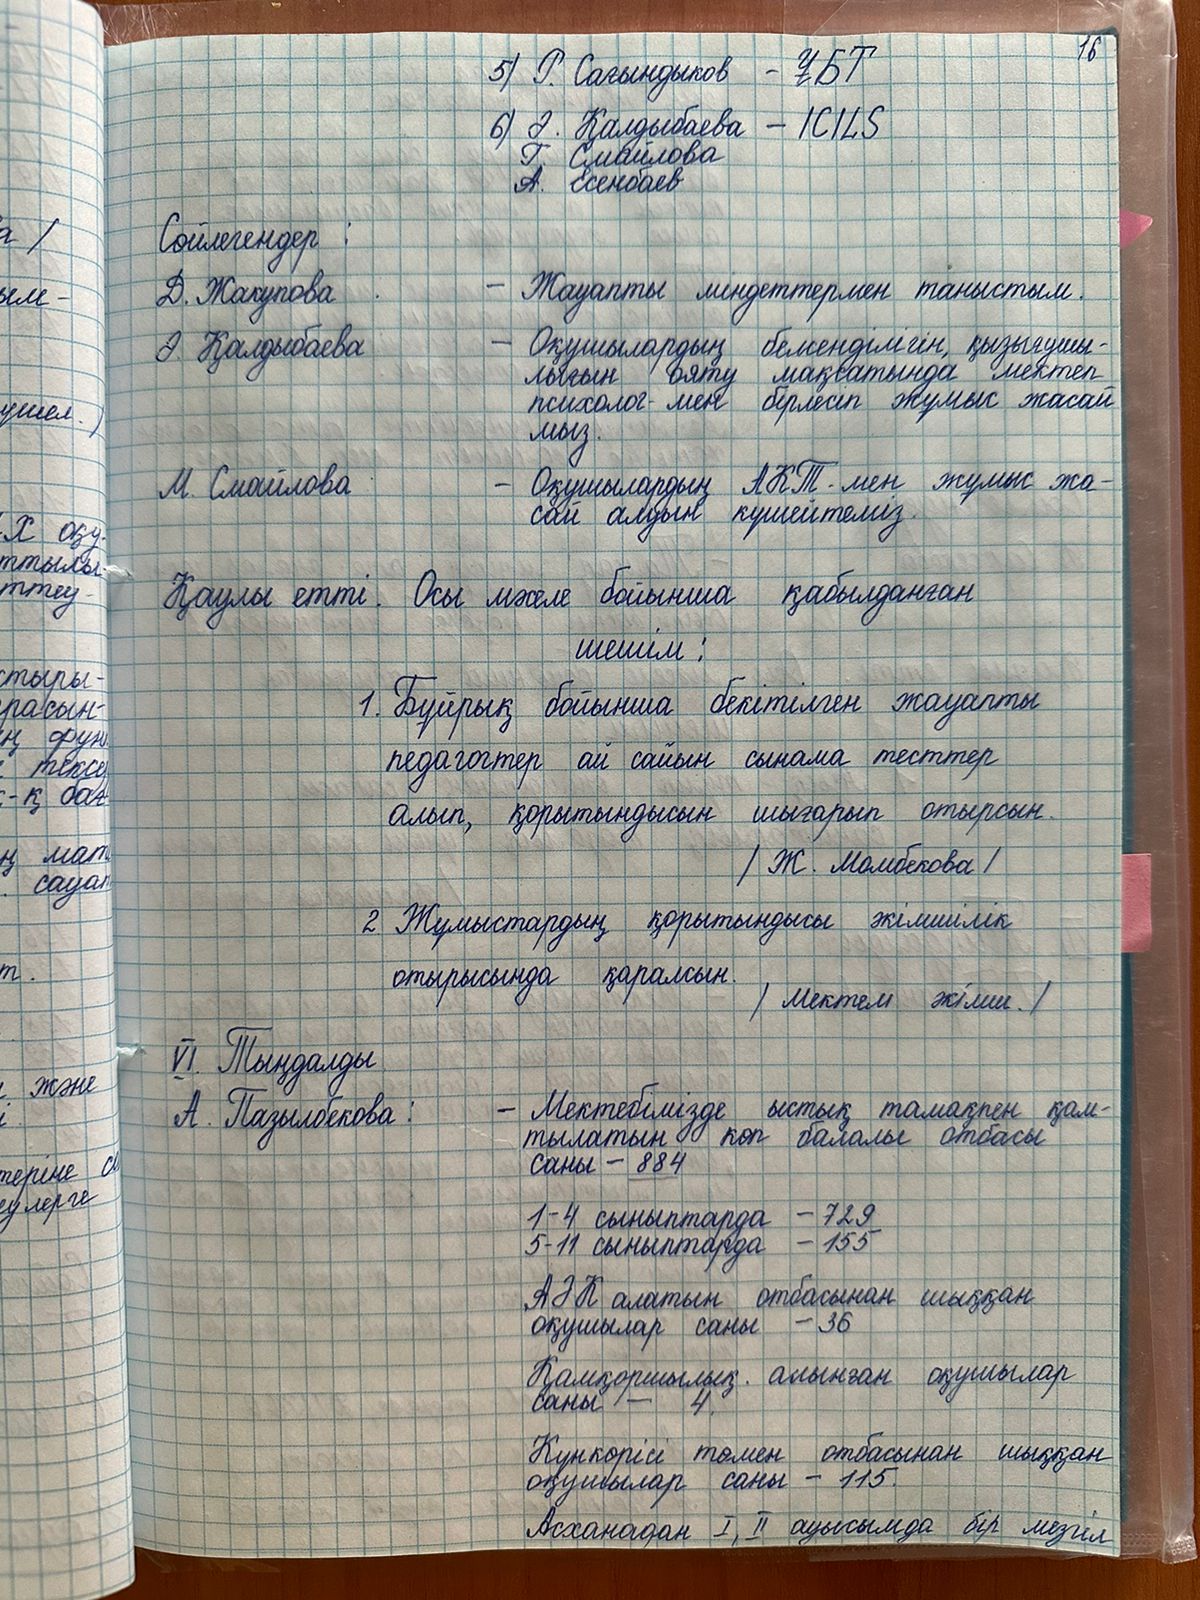 16
5) Г. Сағындықов - ҰБТ
6) Ә. Қалдыбаева - ICILS
Г. Смайлова
А. Есенбаев
Сөйлегендер :
Д. Жакупова - Жауапты міндеттермен таныстым.
Ә Қалдыбаева - Оқушылардың белсенділігін, қызығушы-
лығын ояту мақсатында мектеп
психолог-мен бірлесіп жұмыс жасай
мыз.
М. Смайлова - Оқушылардың АКТ-мен жұмыс жа-
сай алуын күшейтеміз.
Қаулы етті. Осы мәселе бойынша қабылданған
шешім :
1. Бұйрық бойынша бекітілген жауапты
педагогтер ай сайын сынама тесттер
алып, қорытындысын шығарып отырсын.
/ Ж. Момбекова /
2 Жұмыстардың қорытындысы әкімшілік
отырысында қаралсын.
/ Мектеп әкімш. /
VI. Тыңдалды
А. Пазылбекова : - Мектебімізде ыстық тамақпен қам-
тылатын көп балалы отбасы
саны - 884
1-4 сыныптарда - 729
5-11 сыныптарда - 155
АӘК алатын отбасынан шыққан
оқушылар саны - 36
Қамқоршылық. алынған оқушылар
саны - 4.
Күнкөрісі төмен отбасынан шыққан
оқушылар саны - 115.
Асханадан I, II ауысымда бір мезгіл